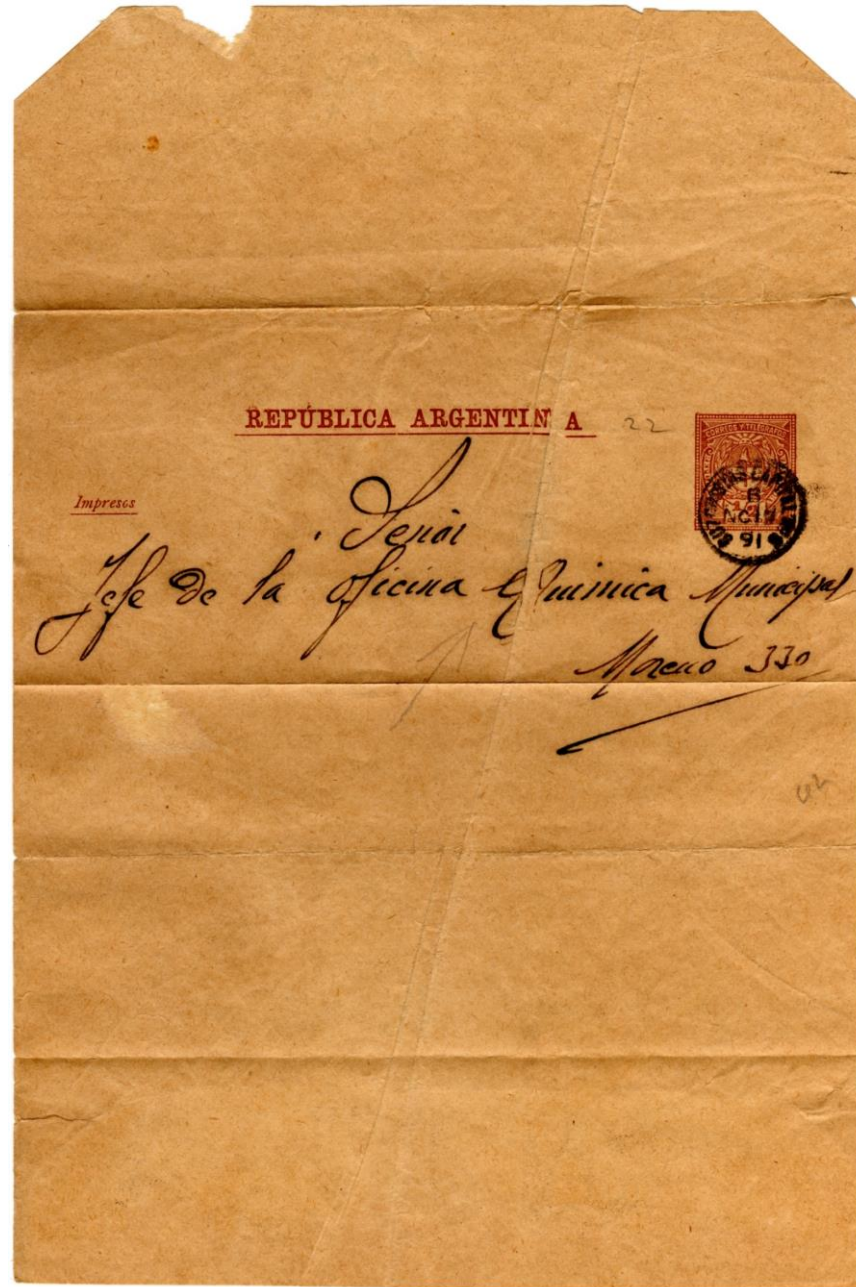 REPÚBLICA ARGENTINA
22
Impresos
CORREOS Y TELEGRAFOS
91
Señor
Jefe de la Oficina Quimica Municipal
Moreno 330